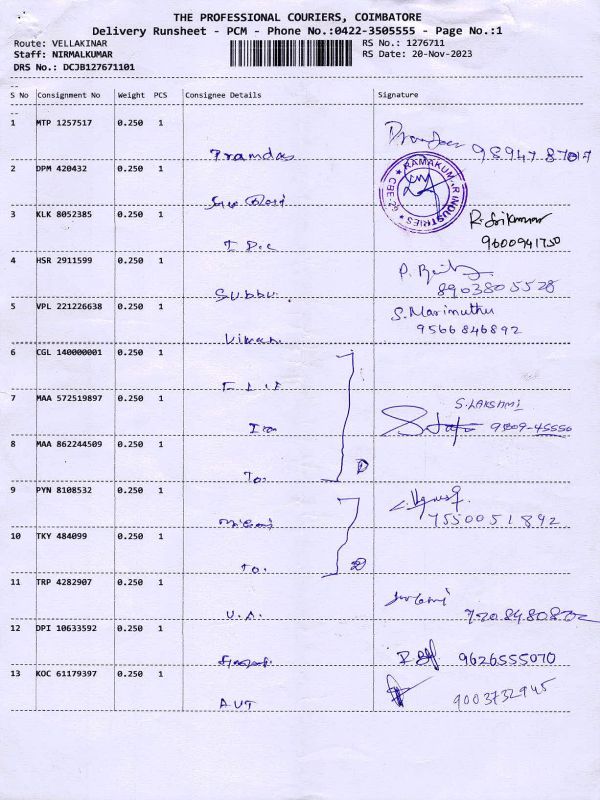 THE PROFESSIONAL COURIERS, COIMBATORE
Delivery Runsheet - PCM - Phone No.:0422-3505555 - Page No.:1
Route: VELLAKINAR
RS No.: 1276711
Staff: NIRMALKUMAR
RS Date: 20-Nov-2023
DRS No.: DCJB127671101
S No Consignment No Weight PCS Consignee Details Signature
1 MTP 1257517 0.250 1
Pramdas 98947 87017
2 DPM 420432 0.250 1
RAMAKUMAR INDUSTRIES CBE-29
3 KLK 8052385 0.250 1 R. Sri Kumar
9600941750
4 HSR 2911599 0.250 1
Subbu. 8903805528
5 VPL 221226638 0.250 1 S. Marimuthu
9566846892
6 CGL 140000001 0.250 1
7 MAA 572519897 0.250 1 S. LAKSHMI
8 MAA 862244509 0.250 1
To.
9 PYN 8108532 0.250 1
7550051892
10 TKY 484099 0.250 1
To.
11 TRP 4282907 0.250 1
U.A.
12 DPI 10633592 0.250 1
9626555070
13 KOC 61179397 0.250 1
AUT 9003732945